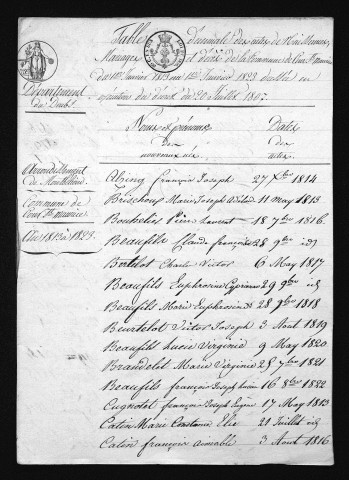 Table Décennale des actes de Naissances,
Mariages et décès de la Commune de Pont St Maurice
du 1er Janvier 1813 au 1er Janvier 1823 dressée en
exécution du décret du 20 Juillet 1807.
Département
du Doubs
Noms et prénoms Dates
des des
nouveaux nés. actes.
Arrondissement
de Montbéliard
Commune de
Pont St maurice
An 1813 à 1823
françois Joseph 27 Xbre 1814
Marie Joseph 11 may 1813
Pierre Laurent 18 7bre 1816
Beaufils Claude françois 28 9bre id
Bertelot Charle Victor 6 May 1817
Beaufils Euphrosine Cyprienne 29 9bre id
Beaufils Marie Euphrosine 28 9bre 1818
Beurtelot Victor Joseph 3 Aout 1819
Beaufils Lucie Virginie 9 May 1820
Brandelet Marie Virginie 28 7bre 1821
Beaufils françois Joseph 16 8bre 1822
Cugnotet françois Joseph Eugène 17 May 1813
Catin Marie Constance Elie 21 Juillet id
Catin françois aimable 3 Aout 1816